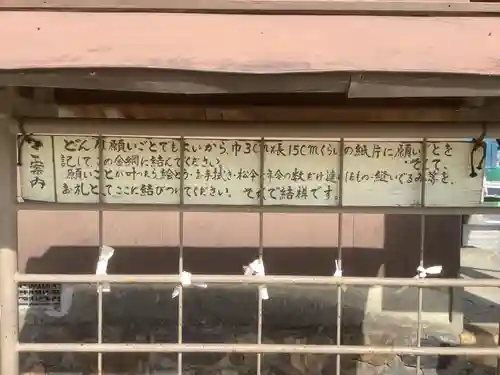 ご案内
どんな願いごとでもよいから、巾3Cm×長15Cmくらいの紙片に願いごとを
記して、この金網に結んでください。 そして、
願いごとが叶ったら絵とう・お手拭き・松かさ・年令の数だけ連ねもの・縫いぐるみ等を、
お礼としてここに結びつけてください。 それで結構です。